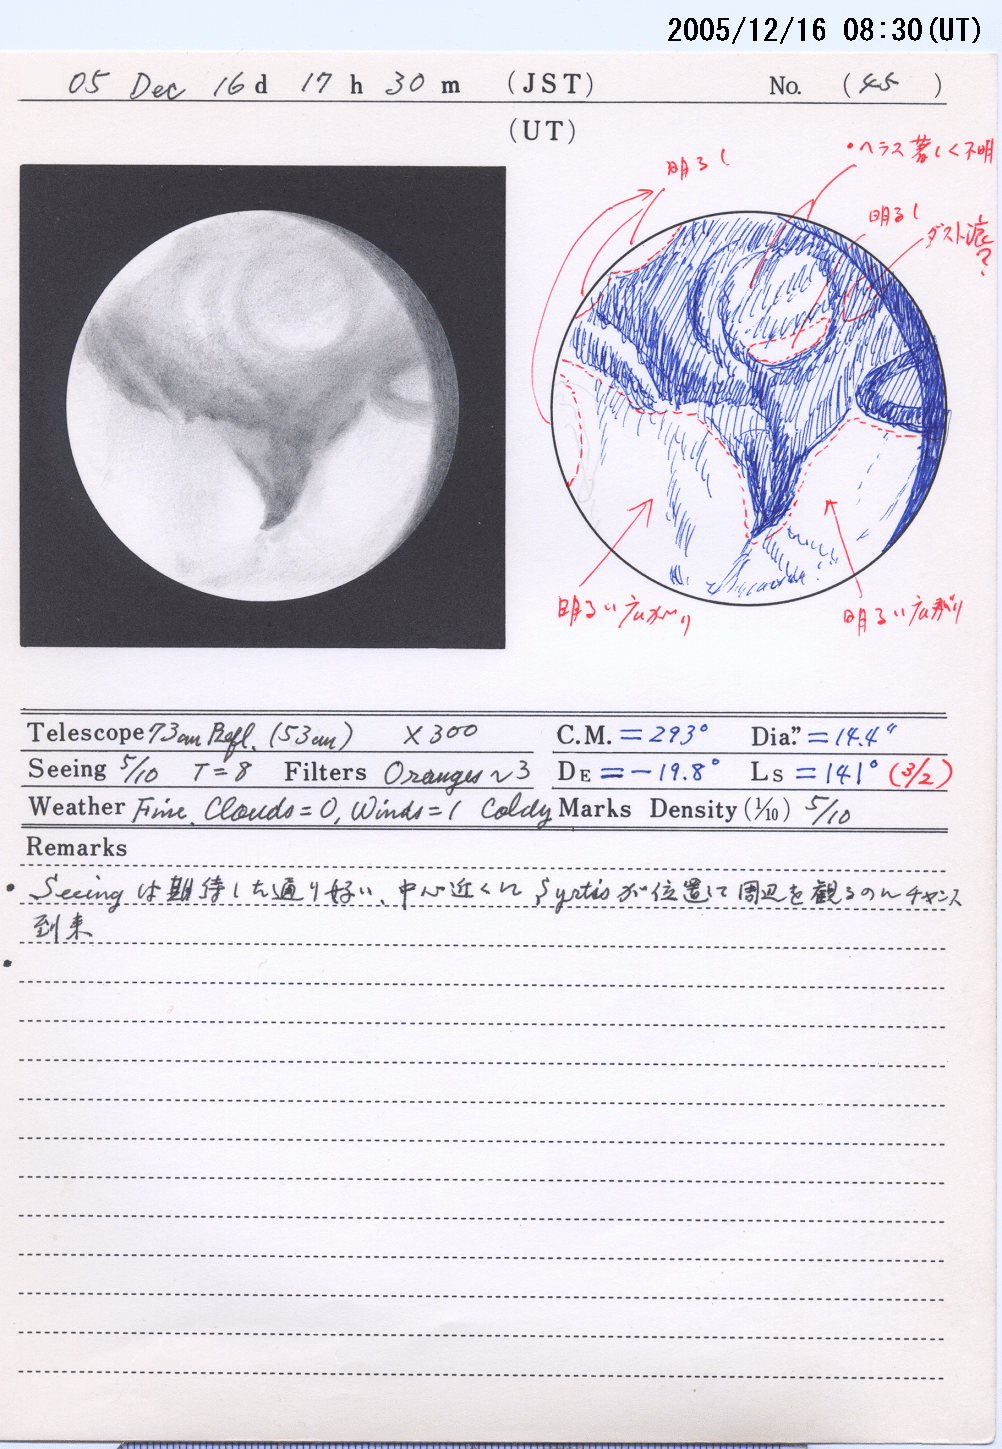 2005/12/16 08:30(UT)
05 Dec 16d 17h 30m (JST) No. (45)
(UT)
・ヘラス著しく不明
明るし
明るし
ダスト痕?
明るい広がり
明るい広がり
Telescope 73cm Refl. (53cm) ×300 C.M. =293° Dia." =14.4"
Seeing 5/10 T=8 Filters Oranges ~3 DE =-19.8° Ls =141° (3/2)
Weather Fine. Clouds=0, Winds=1 Coldy Marks Density (1/10) 5/10
Remarks
・Seeingは期待した通り好い、中心近くに Syrtisが位置して周辺を観るのにチャンス
到来
・